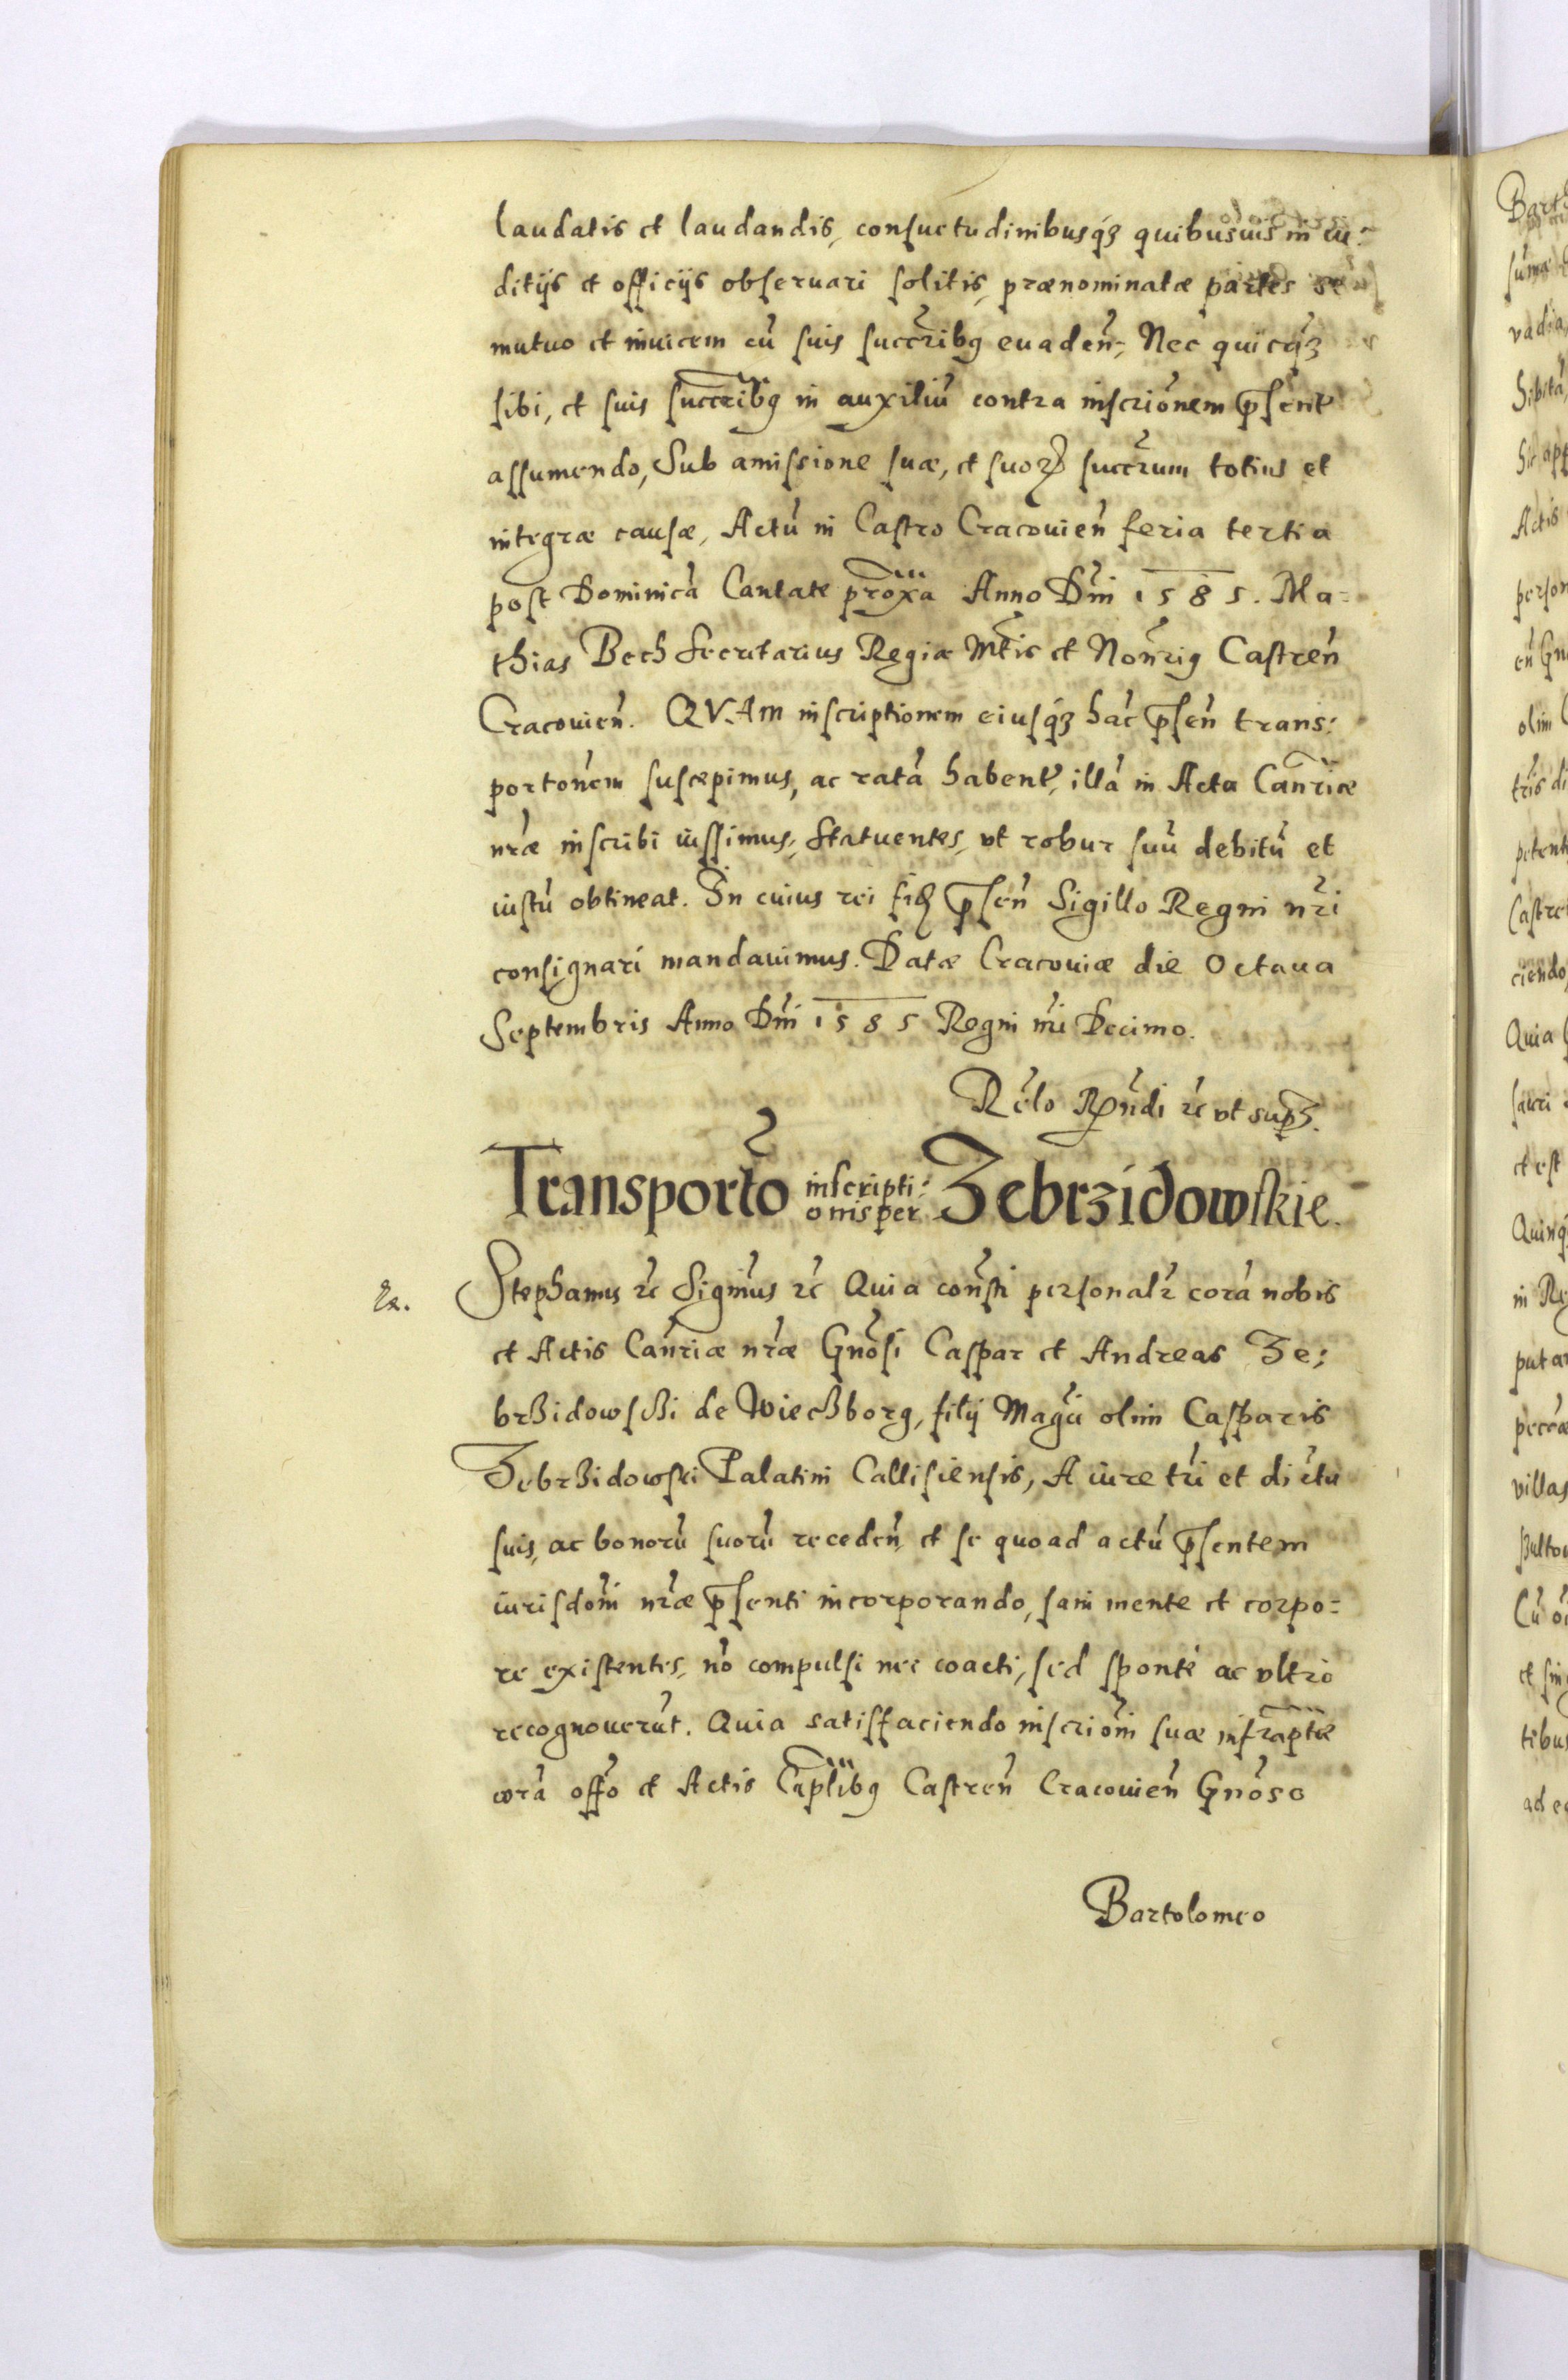 laudatis et laudandis, consuetudinibusq́ꝫ quibusuis in iu:
ditijs et officijs obseruari solitis, prænominatæ partes se
mutuo et inuicem cū suis succr̄ibꝯ euaden̄, Nec quicq́ꝫ
sibi, et suis succr̄ibꝯ in auxiliū contra inscrip̄onem p̄sent̄
assumendo, Sub amissione suæ, et suoꝝ succr̄um totius et
integræ causæ, Actū in Castro Cracouien̄ feria tertia
post Dominicā Cantate prox̄a Anno Dn̄i 1585. Ma=
thias Bech Secretarius Regiæ Mt̄is et Nōriꝯ Castren̄
Cracouien̄. QVAm inscriptionem eiusq́ꝫ hāc p̄sen̄ trans:
portōnem suscepimus, ac ratā habent̄, illā in Acta Canr̄iæ
nr̄æ inscribi iussimus, Statuentes, vt robur suū debitū et
iustū obtineat. In cuius rei fid̄ p̄sen̄ Sigillo Regni nr̄i
consignari mandauimus. Datæ Cracouiæ die Octaua
Septembris Anno Dn̄i 1585 Regni nr̄i Decimo.
Rēlo Rn̄di ꝛc̄ vt supꝫ.
Transportō inscripti:
onis per Zebrzidowskie.
Stephanus ꝛc̄ Signīus ꝛc̄ Quia cōnsti personalr̄ corā nobis
et Actis Canr̄iæ nr̄æ Gnōsi Caspar et Andreas Ze:
brzidowski de Wieczborg, filij Magcī olim Casparis
Zebrzidowski Palatini Callisiensis, A iure tr̄i et dictu
suis, ac bonorū suorū receden̄ et se quoad actū p̄sentem
iurisdōni nr̄æ p̄senti incorporando, sani mente et corpo=
re existentes, nō compulsi nec coacti, sed sponte ac vltro
recognouerūt. Quia satisfaciendo inscriōni suæ infrap̄tæ
corā offō et Actis Cap̄libꝯ Castren̄ Cracouien̄ Gnōso
Bartolomeo